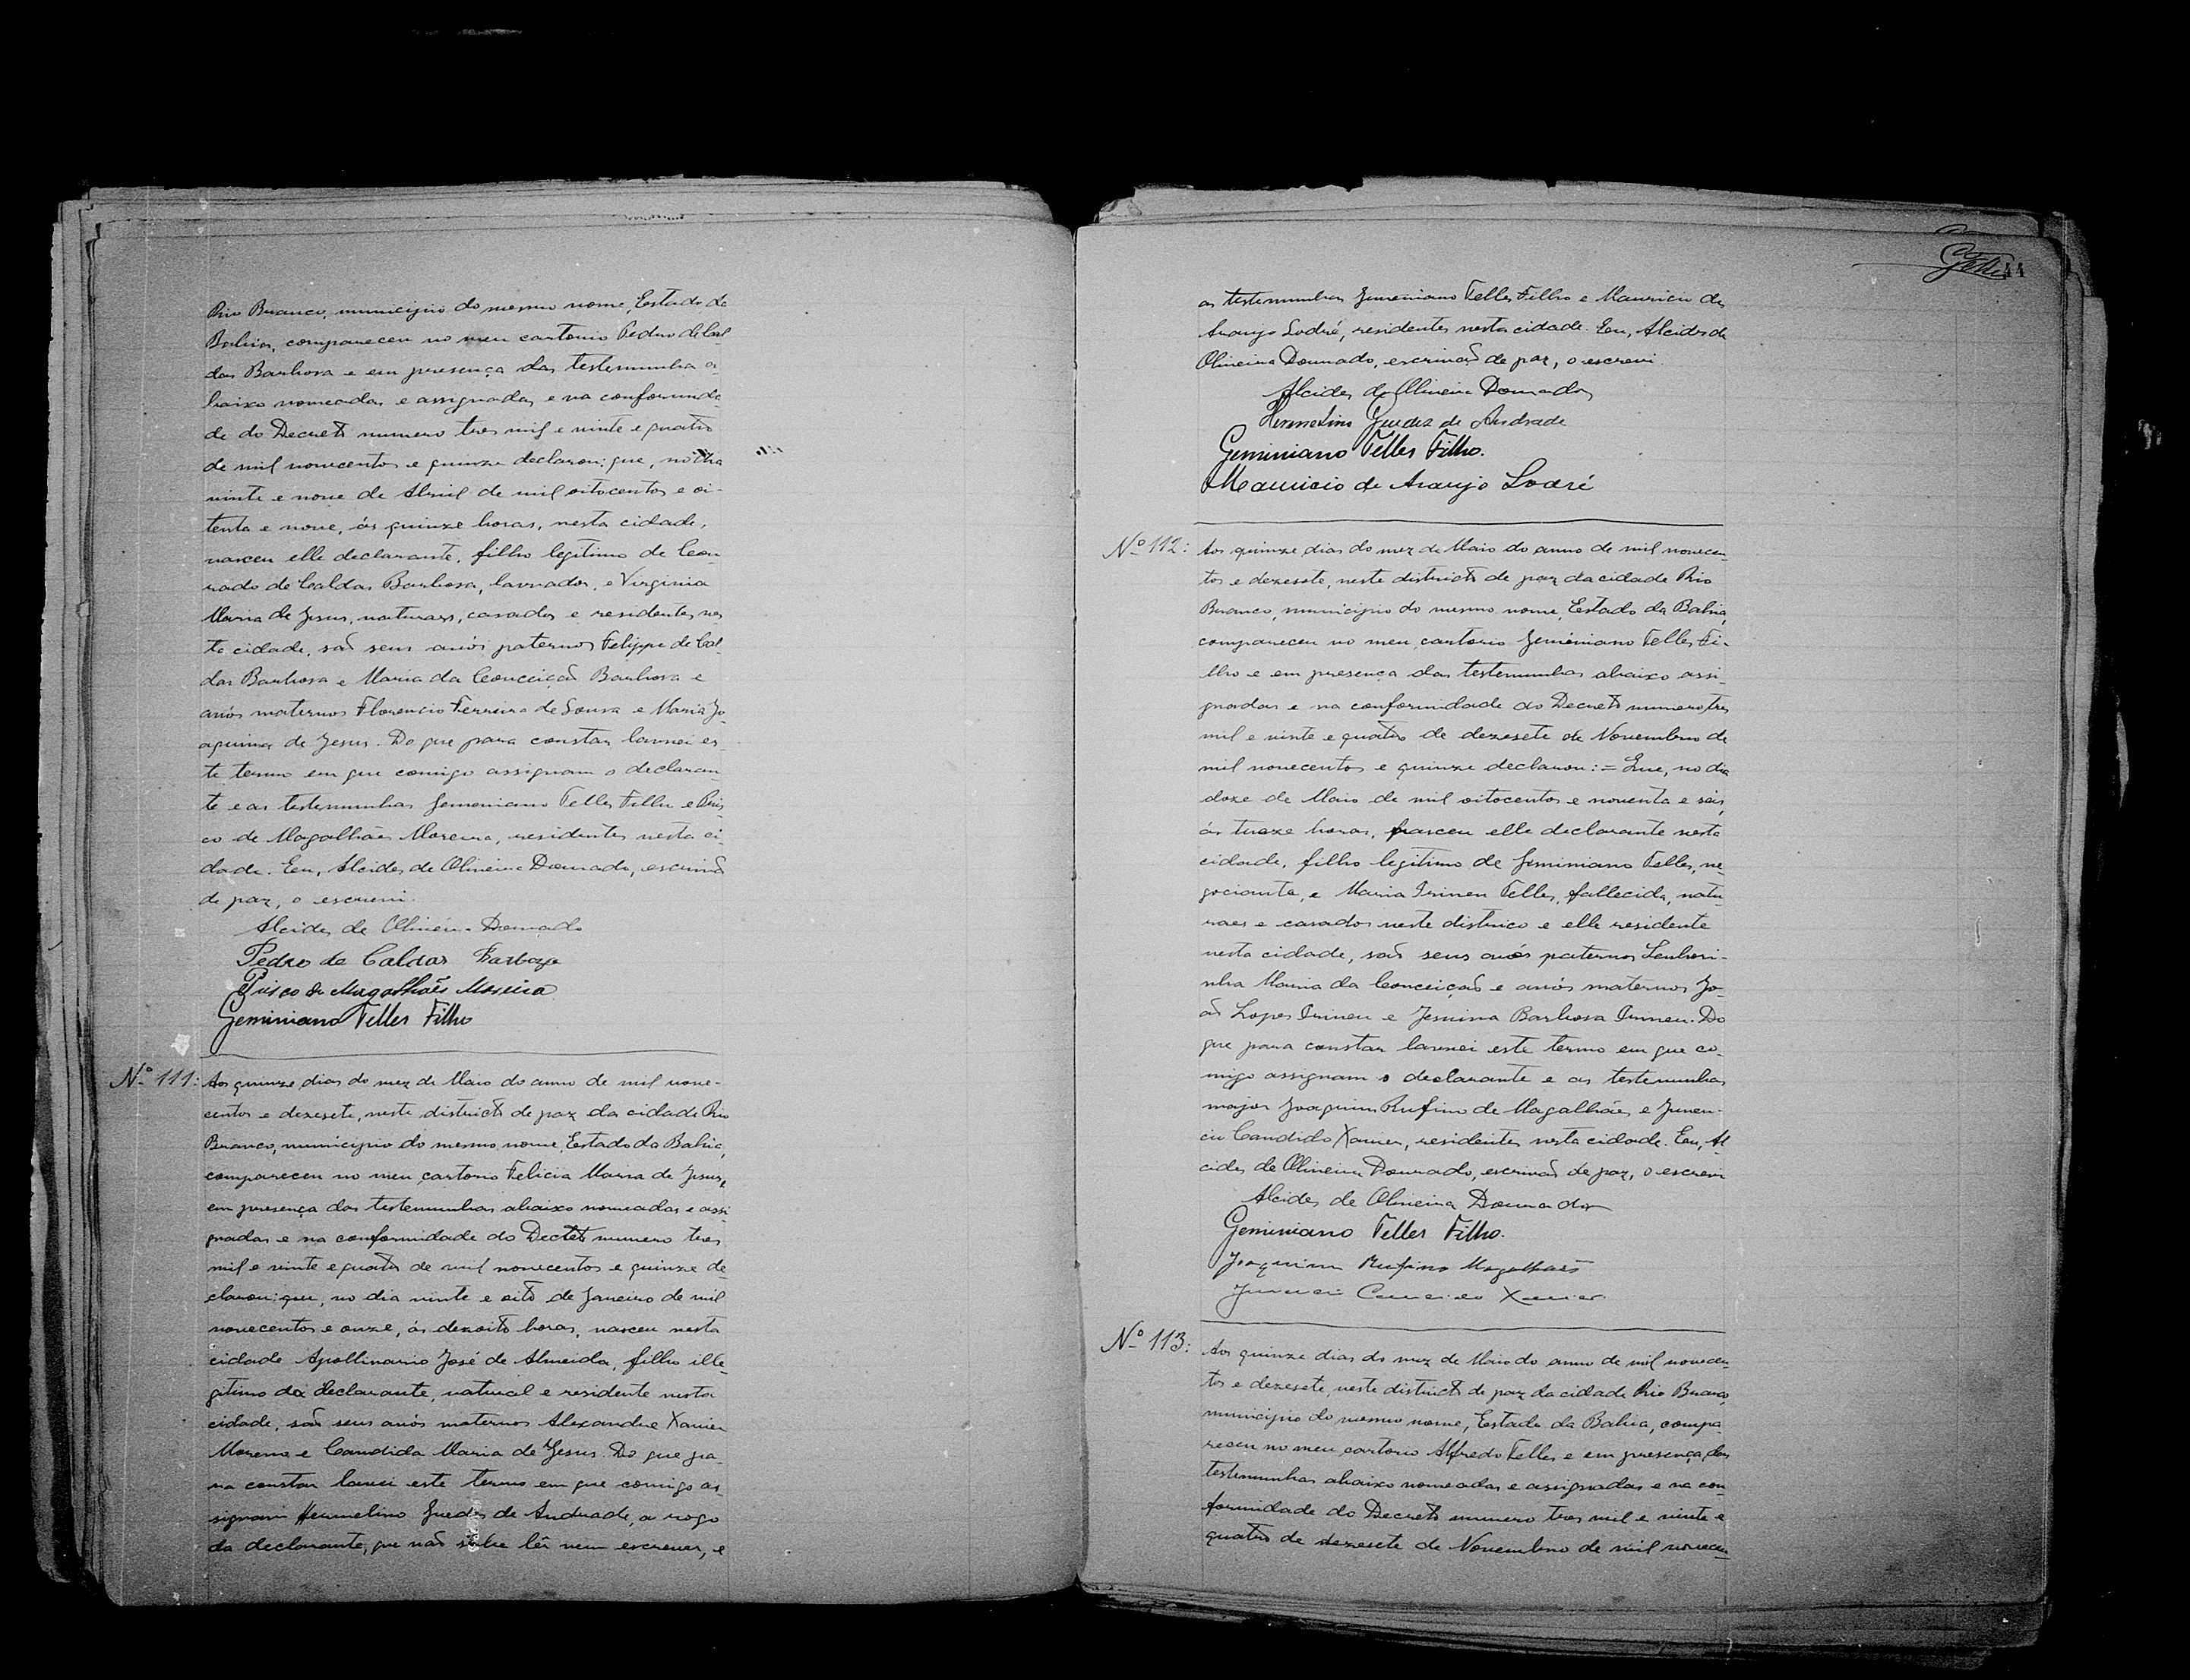 Rio Branco, municipio do mesmo nome, Estado da
Bahia, compareceu no meu cartorio Pedro de Cal
das Barbosa e em presença das testemunha a-
baixo nomeadas e assignadas e na conformida
de do Decreto numero tres mil e vinte e quatro
de mil novecentos e quinze declarou: que, no dia
vinte e nove de Abril de mil oitocentos e oi-
tenta e nove, ás quinze horas, nesta cidade,
nasceu elle declarante, filho legitimo de Con
rado de Caldas Barbosa, lavrador, e Virginia
Maria de Jesus, naturaes, casados e residentes nes
ta cidade, saõ seus avós paternos Felippe de Cal
das Barbosa e Maria da Conceiçaõ Barbosa e
avós maternos Florencio Ferreira de Sousa e Maria Jo
aquina de Jesus. Do que para constar lavrei es
te termo em que comigo assignam o declaran
te e as testemunhas Geminiano Telles Filho e Pris
co de Magalhães Moreira, residentes nesta ci
dade. Eu, Alcides de Oliveira Dourado, escrivaõ
de paz, o escrevi.
Alcides de Oliveira Dourado
Pedro de Caldas Barboza
Prisco de Magalhães Moreira
Geminiano Telles Filho
Nº 111: Aos quinze dias do mez de Maio do anno de mil nove-
centos e dezesete, neste districto de paz da cidade Rio
Branco, municipio do mesmo nome, Estado da Bahia,
compareceu no meu cartorio Felicia Maria de Jesus,
em presença das testemunhas abaixo nomeadas e assi
gnadas e na conformidade do Decteto numero tres
mil e vinte e quatro de mil novecentos e quinze de
clarou: que, no dia vinte e oito de Janeiro de mil
novecentos e onze, ás dezoito horas, nasceu nesta
cidade Apollinario José de Almeida, filho ille
gitimo da declarante, natural e residente nesta
cidade, saõ seus avós maternos Alexandre Xavier
Moreno e Candida Maria de Jesus. Do que pa
ra constar lavrei este termo em que comigo as
signam Hermelino Guedes de Andrade, a rogo
da declarante, que naõ sabe lêr nem escrever, e
44
as testemunhas Geminiano Telles Filho e Mauricio de
Araujo Sodré, residentes nesta cidade. Eu, Alcides de
Oliveira Dourado, escrivaõ de paz, o escrevi.
Alcides de Oliveira Dourado
Hermelino Guedes de Andrade
Geminiano Telles Filho.
Mauricio de Araujo Sodré
Nº 112: Aos quinze dias do mez de Maio do anno de mil novecen
tos e dezesete, neste districto de paz da cidade Rio
Branco, municipio do mesmo nome, Estado da Bahia,
compareceu no meu cartorio Geminiano Telles Fi-
lho e em presença das testemunhas abaixo assi-
gnadas e na conformidade do Decreto numero tres
mil e vinte e quatro de dezesete de Novembro de
mil novecentos e quinze declarou: = Que, no dia
doze de Maio de mil oitocentos e noventa e seis,
ás treze horas, nasceu elle declarante nesta
cidade, filho legitimo de Geminiano Telles, ne-
gociante, e Maria Irineu Telles, fallecida, natu-
raes e casados neste districo e elle residente
nesta cidade, saõ seus avós paternos Senhori-
nha Maria da Conceiçaõ e avós maternos Jo-
aõ Lopes Irineu e Jesuina Barbosa Irineu. Do
que para constar lavrei este termo em que co-
migo assignam o declarante e as testemunhas
major Joaquim Rufino de Magalhães e Juven-
cio Candido Xavier, residentes nesta cidade. Eu, Al
cides de Oliveira Dourado, escrivaõ de paz, o escrevi
Alcides de Oliveira Dourado
Geminiano Telles Filho.
Joaquim Rufino Magalhães
Juvencio Candido Xavier
Nº 113: Aos quinze dias do mez de Maio do anno de mil novecen
tos e dezesete, neste districto de paz da cidade Rio Branco,
municipio do mesmo nome, Estado da Bahia, compa
receu no meu cartorio Alfredo Telles e em presença das
testemunhas abaixo nomeadas e assignadas e na con
formidade do Decreto numero tres mil e vinte e
quatro de dezesete de Novembro de mil novecen